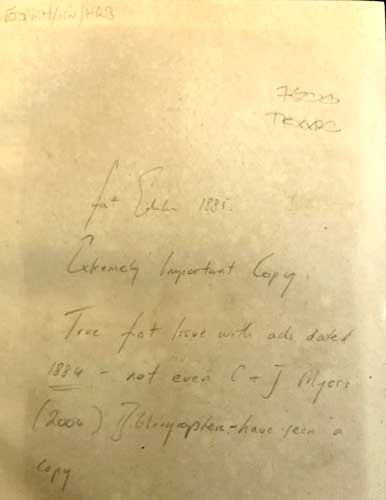 First Edition 1885.
Extremely Important Copy.
True first Issue with ads dated
1884 - not even C + J Myers
(2004) Bibliographers - have seen a
copy